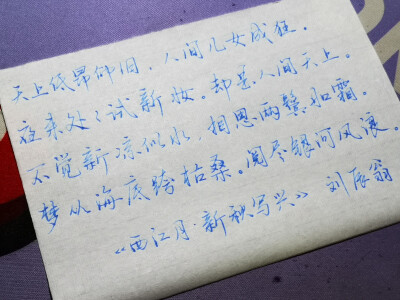 天上低昂仰旧，人间儿女成狂。
夜来处处试新妆。却是人间天上。
不觉新凉似水，相思两鬓如霜。
梦从海底跨枯桑。阅尽银河风浪。
《西江月·新秋写兴》 刘辰翁